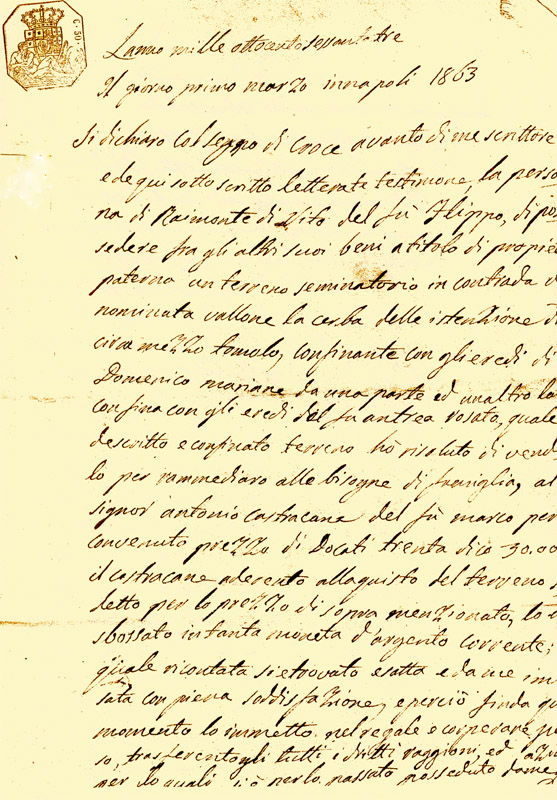 C. 50.
Lanno mille ottocento sessanta tre
Il giorno primo marzo innapoli 1863
Si dichiaro col segno di croce avanto di me scrittore
e de qui sotto scritto letterate testimone, la perso
na di Raimonte di Vito del fù Flippo, di pos
sedere fra gli altri suoi beni a titolo di propiet
paterna un terreno seminatorio in contrada d
nominata vallone la cerba delle istenzione d
circa mezzo tomolo, confinante con glieredi di
Domenico mariane da una parte ed unaltro la
confina con gli eredi del fu antrea rosato, quale
descritto e confinato terreno hò risoluto di vend
lo per rammediaro alle bisogne di famiglia, al
signor antonio castracane del fù marco per
convenuto prezzo di Docati trenta dico 30.00
il castracane aderento allaquisto del terreno s
detto per lo prezzo di sopra menzionato, lo
sbossato intanta moneta d'argento corrente;
quale ricontata si è trovato esatta e da me im
sata con piena soddisfazione, e perciò finda qu
momento lo immetto nel regale e corperare po
so, trasferentogli tutti i dritti raggioni, ed azi
per lo quali per lo passato posseduto dame